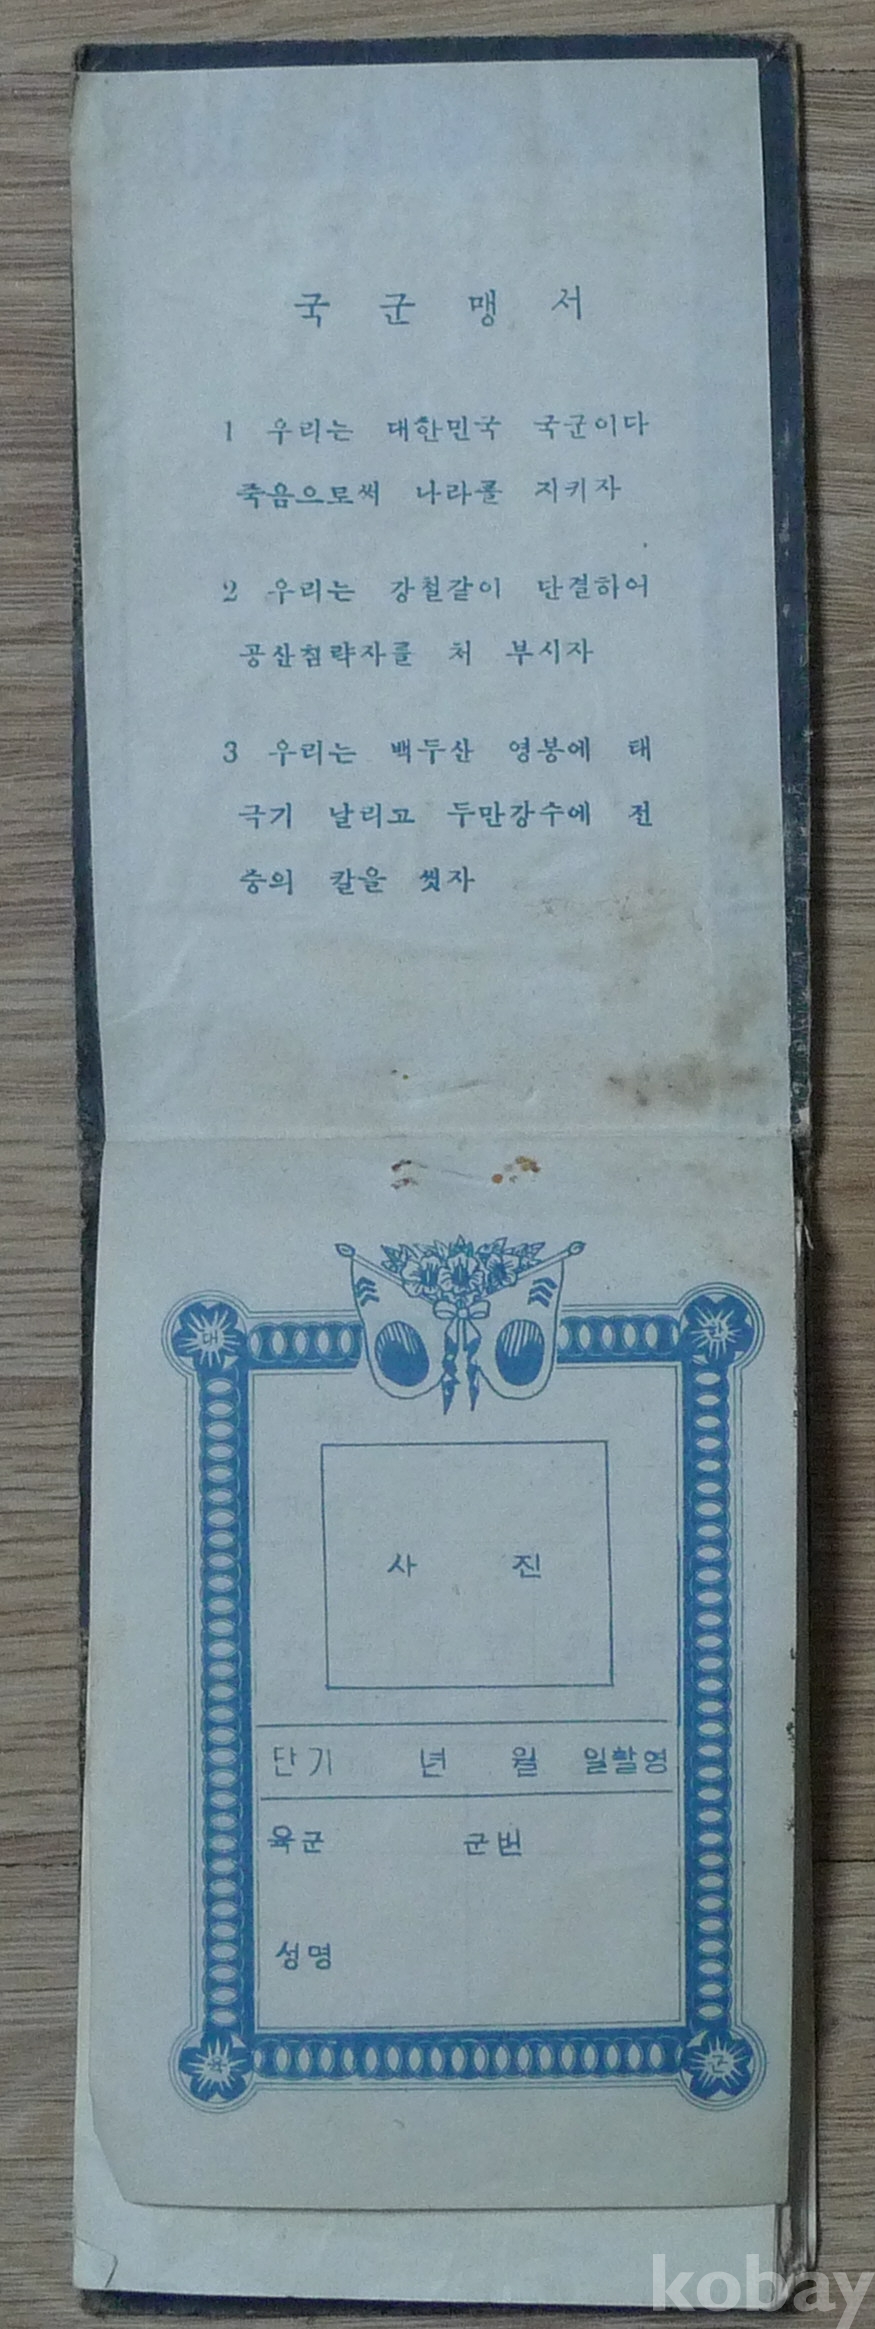 국 군 맹 서
1 우리는 대한민국 국군이다
죽음으로써 나라를 지키자
2 우리는 강철같이 단결하여
공산침략자를 처 부시자
3 우리는 백두산 영봉에 태
극기 날리고 두만강수에 전
중의 칼을 씻자
대 한
사 진
단기 년 월 일촬영
육군 군번
성명
육 군
kobay